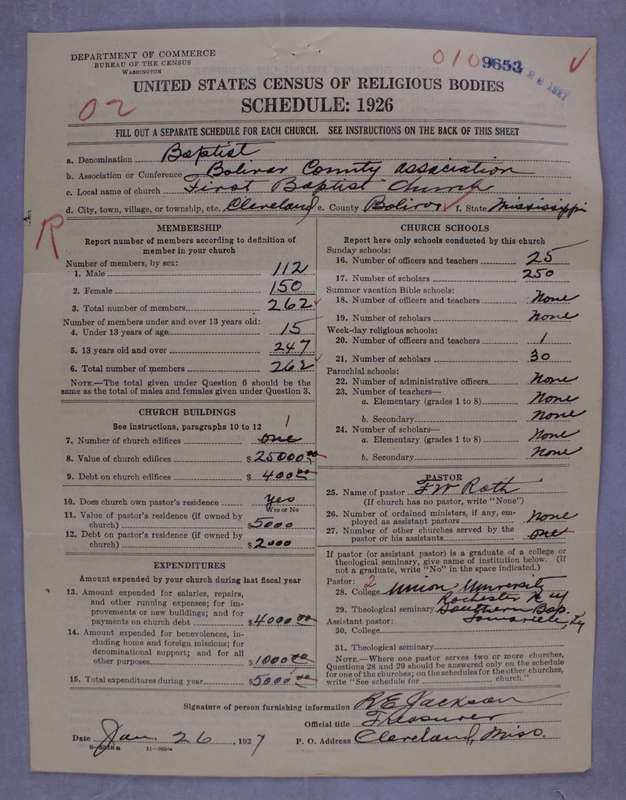 DEPARTMENT OF COMMERCE
BUREAU OF THE CENSUS
WASHINGTON
010 9653
UNITED STATES CENSUS OF RELIGIOUS BODIES
SCHEDULE: 1926
02
FILL OUT A SEPARATE SCHEDULE FOR EACH CHURCH. SEE INSTRUCTIONS ON THE BACK OF THIS SHEET
a. Denomination Baptist
b. Association or Conference Bolivar County association
c. Local name of church First Baptist Church
d. City, town, village, or township, etc. Cleveland e. County Bolivar f. State Mississippi
R
MEMBERSHIP
Report number of members according to definition of
member in your church
Number of members, by sex:
1. Male 112
2. Female 150
3. Total number of members 262
Number of members under and over 13 years old:
4. Under 13 years of age 15
5. 13 years old and over 247
6. Total number of members 262
NOTE.—The total given under Question 6 should be the
same as the total of males and females given under Question 3.
CHURCH BUILDINGS
See instructions, paragraphs 10 to 12
7. Number of church edifices one 1
8. Value of church edifices $25000 00
9. Debt on church edifices $400 00
10. Does church own pastor's residence yes
Yes or No
11. Value of pastor's residence (if owned by
church) $5000
12. Debt on pastor's residence (if owned by
church) $2000
EXPENDITURES
Amount expended by your church during last fiscal year
13. Amount expended for salaries, repairs,
and other running expenses; for im-
provements or new buildings; and for
payments on church debt $4000 00
14. Amount expended for benevolences, in-
cluding home and foreign missions; for
denominational support; and for all
other purposes $1000 00
15. Total expenditures during year $5000 00
CHURCH SCHOOLS
Report here only schools conducted by this church
Sunday schools:
16. Number of officers and teachers 25
17. Number of scholars 250
Summer vacation Bible schools:
18. Number of officers and teachers None
19. Number of scholars None
Week-day religious schools:
20. Number of officers and teachers 1
21. Number of scholars 30
Parochial schools:
22. Number of administrative officers None
23. Number of teachers—
a. Elementary (grades 1 to 8) None
b. Secondary None
24. Number of scholars—
a. Elementary (grades 1 to 8) None
b. Secondary None
PASTOR
25. Name of pastor F W Roth
(If church has no pastor, write "None")
26. Number of ordained ministers, if any, em-
ployed as assistant pastors None
27. Number of other churches served by the
pastor or his assistants one
If pastor (or assistant pastor) is a graduate of a college or
theological seminary, give name of institution below. (If
not a graduate, write "No" in the space indicated.)
Pastor: 2
28. College Union University
Rochester N y
29. Theological seminary Southern Bap.
Assistant pastor: Ky
30. College
31. Theological seminary
NOTE.—Where one pastor serves two or more churches,
Questions 28 and 29 should be answered only on the schedule
for one of the churches; on the schedules for the other churches,
write "See schedule for church."
Signature of person furnishing information R E Jackson
Official title Treasurer
Date Jan 26, 1927 P. O. Address Cleveland, Miss.